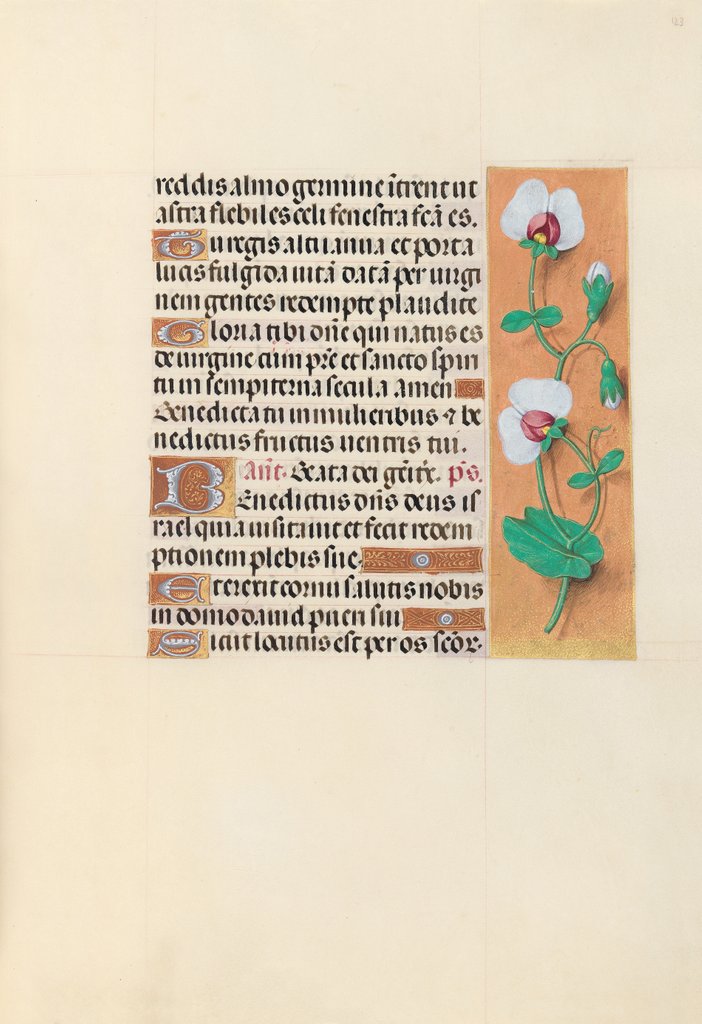 123
reddis almo germine ītrent ut
astra flebiles celi fenestra fcā es.
Tu regis alti ianua et porta
lucis fulgida uitā datā per uirgi
nem gentes redempte plaudite
Gloria tibi dn̄e qui natus es
de uirgine cum pr̄e et sancto spiri
tu in sempiterna secula amen
Benedicta tu in mulieribus ⁊ be
nedictus fructus uentris tui.
Ant̄. Beata dei gēit̄r. ps̄.
Benedictus dn̄s deus is
rael quia uisitauit et fecit redem
ptionem plebis sue.
Et erexit cornu salutis nobis
in domo dauid pueri sui
Sicut locutus est per os scōr.